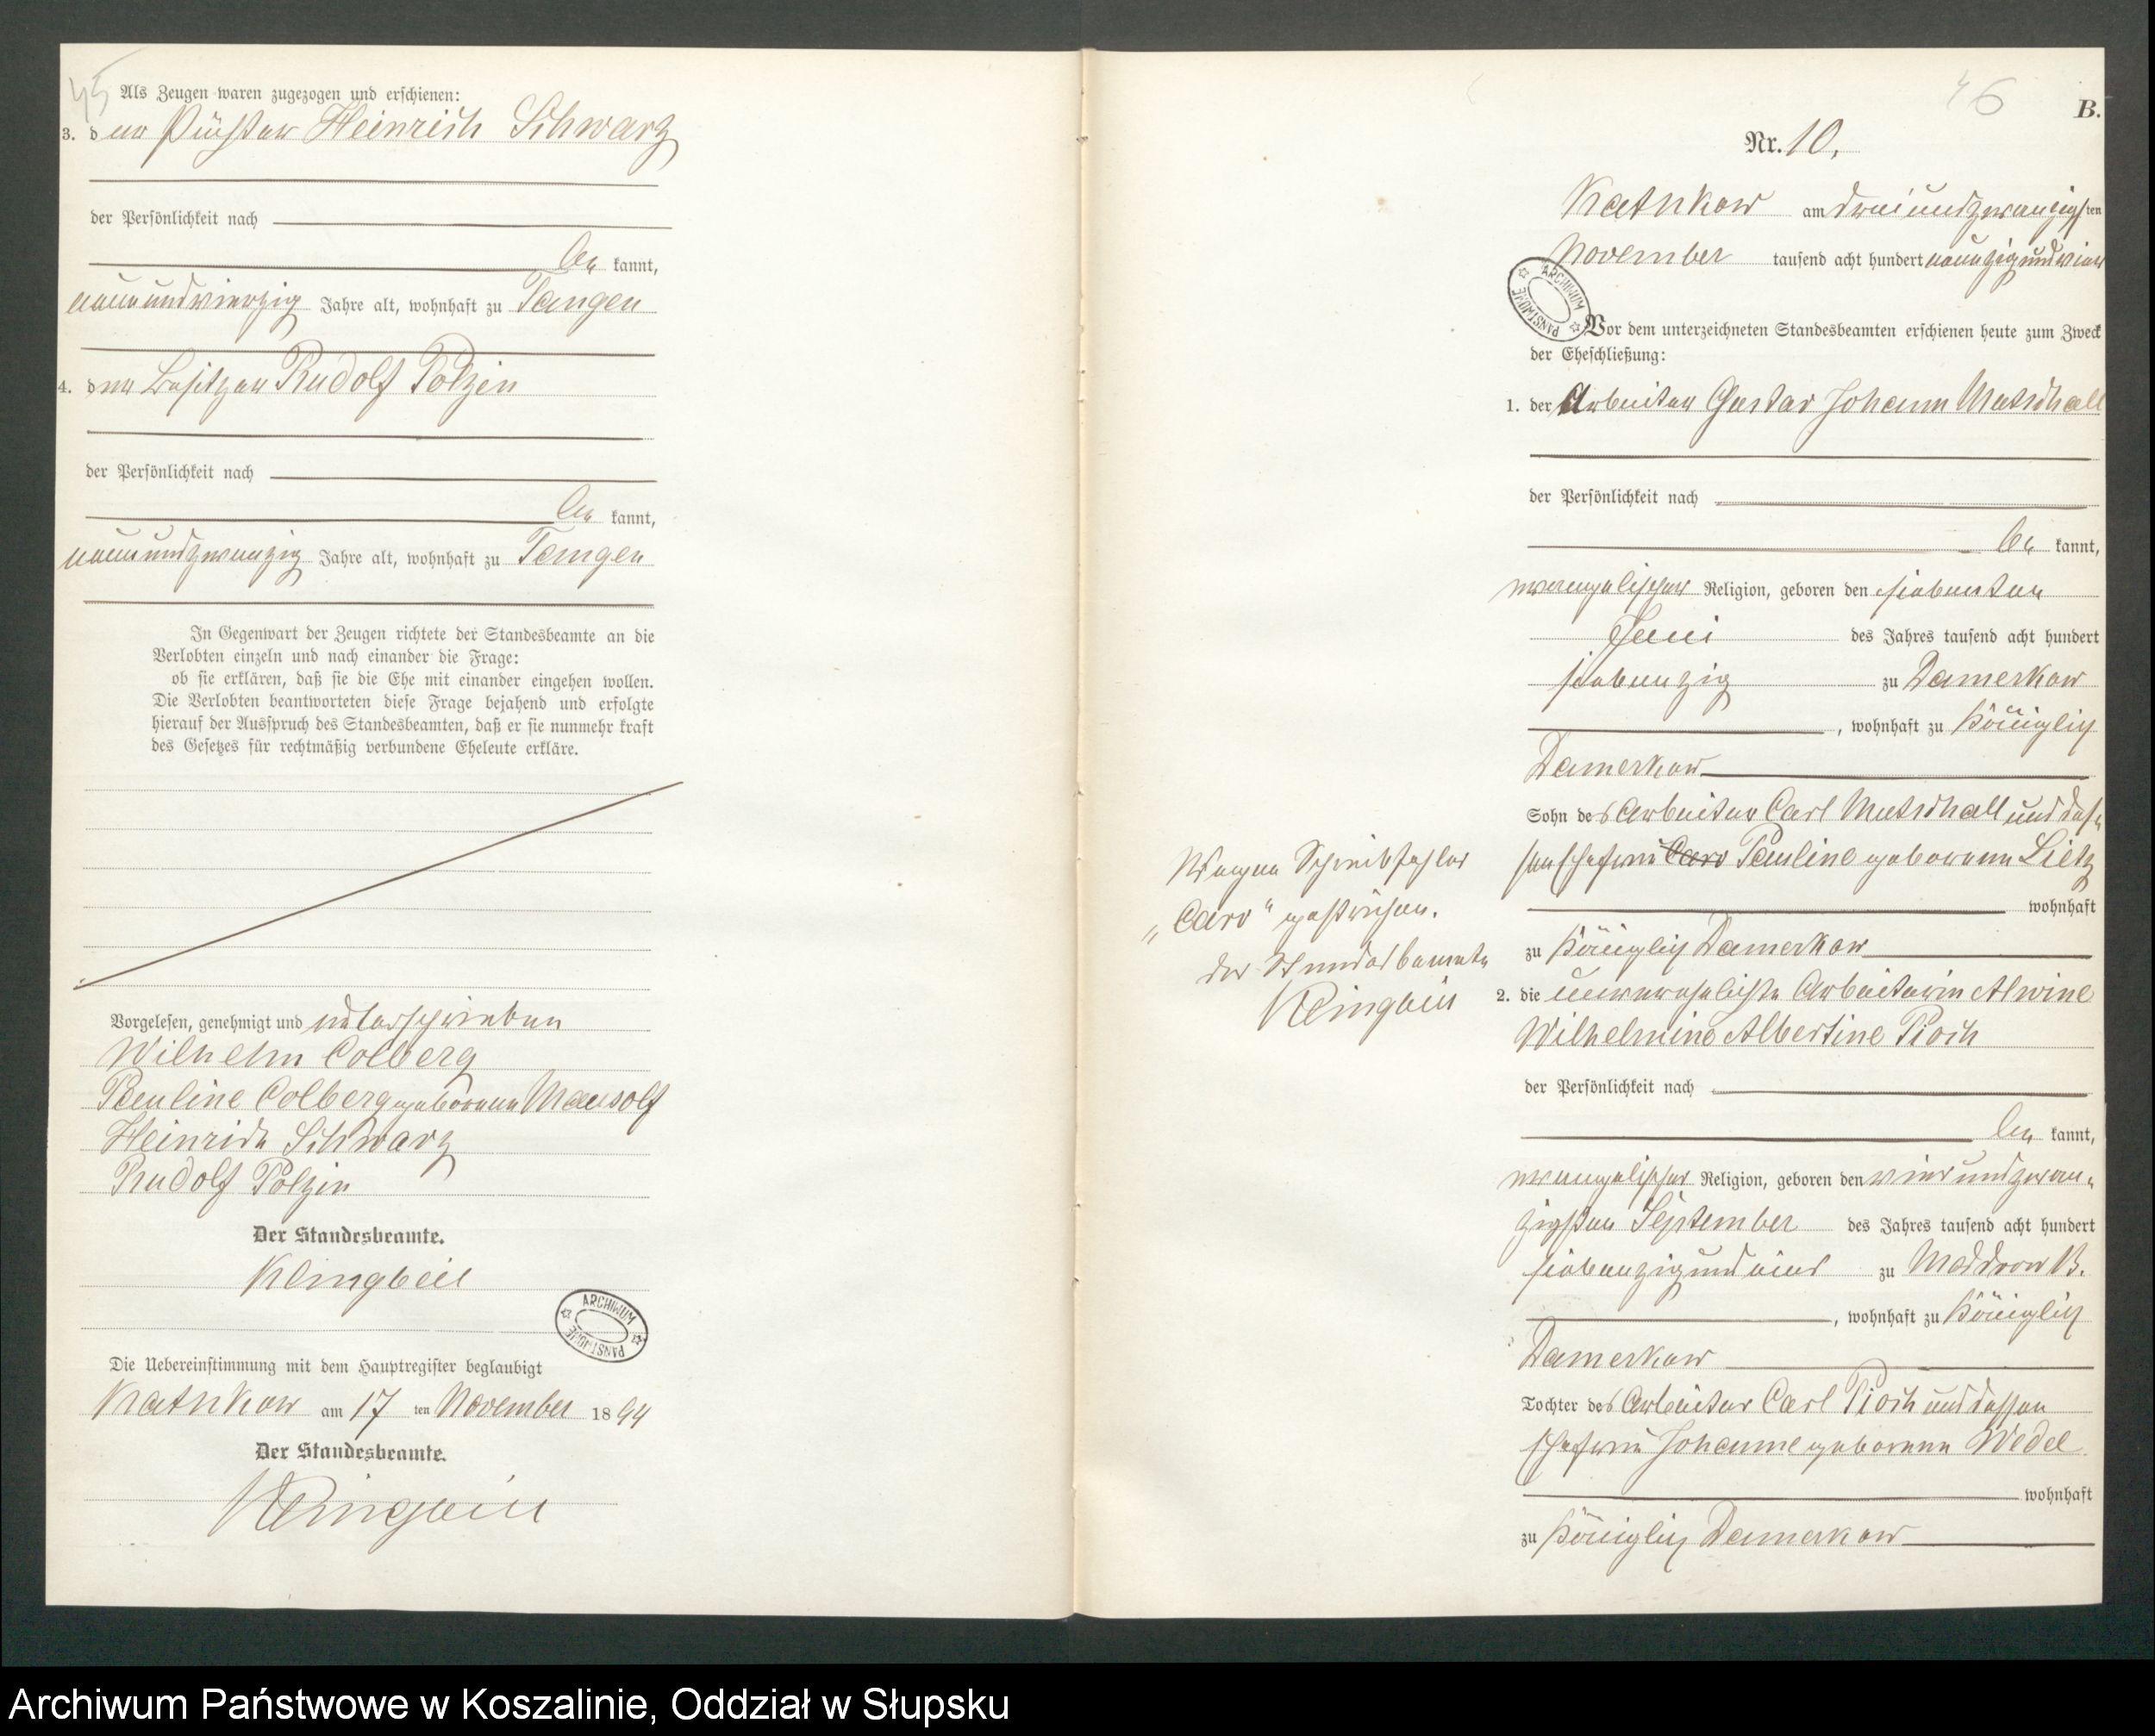 45
Als Zeugen waren zugezogen und erschienen:
3. der Heinrich Schwarz
der Persönlichkeit nach
be kannt,
neunundvierzig Jahre alt, wohnhaft zu Tangen
4. der Besitzer Rudolf Polzin
der Persönlichkeit nach
be kannt,
neunundzwanzig Jahre alt, wohnhaft zu Tangen
In Gegenwart der Zeugen richtete der Standesbeamte an die
Verlobten einzeln und nach einander die Frage:
ob sie erklären, daß sie die Ehe mit einander eingehen wollen.
Die Verlobten beantworteten diese Frage bejahend und erfolgte
hierauf der Ausspruch des Standesbeamten, daß er sie nunmehr kraft
des Gesetzes für rechtmäßig verbundene Eheleute erkläre.
Vorgelesen, genehmigt und unterschrieben
Wilhelm Colberg
Pauline Colberg geborene Mausolf
Heinrich Schwarz
Rudolf Polzin
Der Standesbeamte.
Klingbeil
ARCHIWUM PAŃSTWOWE
Die Uebereinstimmung mit dem Hauptregister beglaubigt
Kathkow am 17 ten November 1894
Der Standesbeamte.
Klingbeil
46
B.
Nr. 10.
Kathkow am dreiundzwanzigsten
November tausend acht hundert neunzig und vier
ARCHIWUM PAŃSTWOWE
Vor dem unterzeichneten Standesbeamten erschienen heute zum Zweck
der Eheschließung:
1. der Arbeiter Gustav Johann Mutschall
der Persönlichkeit nach
be kannt,
evangelischer Religion, geboren den siebenten
Juni des Jahres tausend acht hundert
siebenzig zu Damerkow
, wohnhaft zu Königlich
Damerkow
Sohn des Arbeiter Carl Mutschall und des-
sen Ehefrau Caro Pauline geborene Lietz
wohnhaft
zu Königlich Damerkow
Wegen Schreibfehler
„Caro“ gestrichen.
Der Standesbeamte
Klingbeil
2. die unverehelichte Arbeiterin Alwine
Wilhelmine Albertine Pioch
der Persönlichkeit nach
be kannt,
evangelischer Religion, geboren den vierundzwan-
zigsten September des Jahres tausend acht hundert
siebenzig und eins zu Moddrow B.
, wohnhaft zu Königlich
Damerkow
Tochter des Arbeiter Carl Pioch und dessen
Ehefrau Johanne geborene Wedel
wohnhaft
zu Königlich Damerkow
Archiwum Państwowe w Koszalinie, Oddział w Słupsku